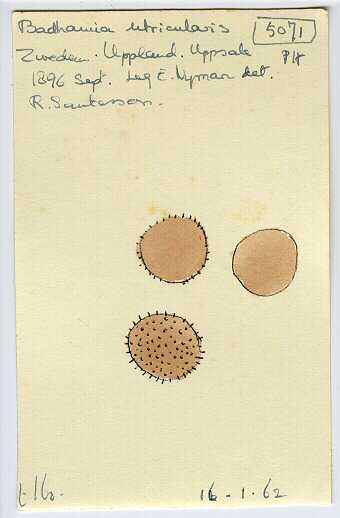 Badhamia utricularis 5071
Zweden. Uppland. Uppsala
1896 Sept. Leg E. Nyman det.
R. Santesson.
16-1-62